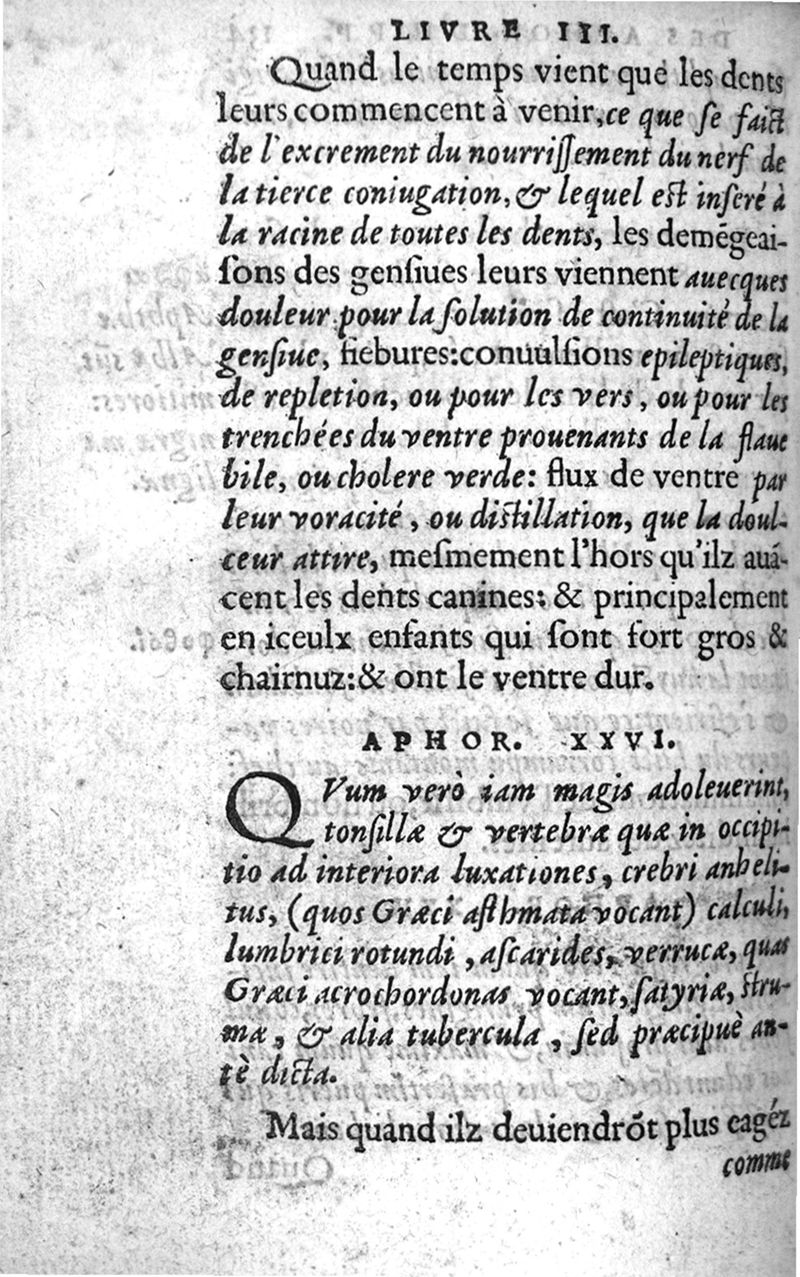 LIVRE III.
Quand le temps vient que les dents
leurs commencent à venir, ce que ſe faict
de l'excrement du nourriſſement du nerf de
la tierce coniugation, & lequel eſt inſeré à
la racine de toutes les dents, les demēgeai-
ſons des genſiues leurs viennent auecques
douleur pour la ſolution de continuité de la
genſiue, fiebures: conuulſions epileptiques,
de repletion, ou pour les vers, ou pour les
trenchées du ventre prouenants de la flaue
bile, ou cholere verde: flux de ventre par
leur voracité, ou diſtillation, que la doul-
ceur attire, meſmement l'hors qu'ilz auá-
cent les dents canines: & principalement
en iceulx enfants qui ſont fort gros &
chairnuz: & ont le ventre dur.
APHOR. XXVI.
QVum verò iam magis adoleuerint,
tonſillæ & vertebræ quæ in occipi-
tio ad interiora luxationes, crebri anheli-
tus, (quos Græci aſthmata vocant) calculi,
lumbrici rotundi, aſcarides, verrucæ, quas
Græci acrochordonas vocant, ſatyriæ, ſtru-
mæ, & alia tubercula, ſed præcipuè an-
tè dicta.
Mais quand ilz deuiendrōt plus eagéz
comme